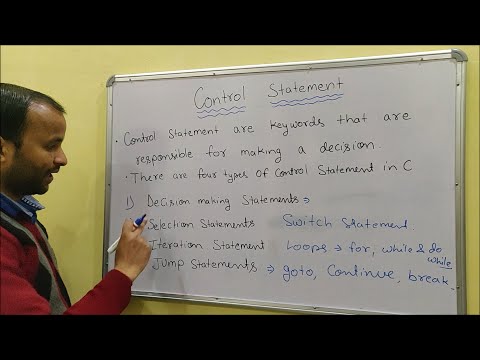 Control Statement
• Control Statement are keywords that are
responsible for making a decision.
• There are four types of Control Statement in C
1) Decision making Statements →
Selection Statements Switch Statement
Iteration Statement Loops → for, while & do
while
Jump Statements → goto, Continue, break.